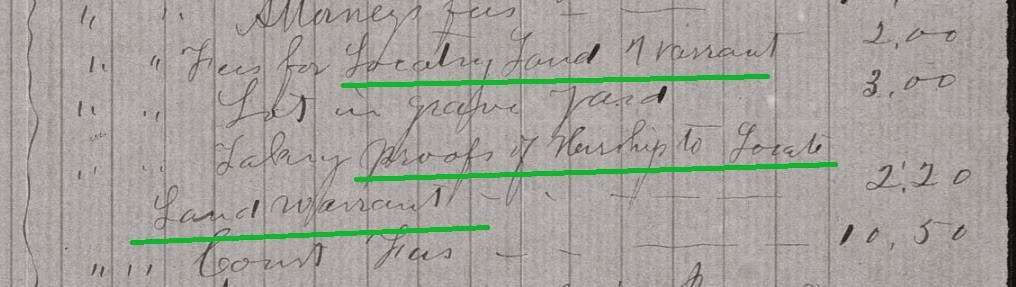 " " Attorneys fees — —
" " Fees for Locating Land Warrant 2,00
" " Lot in grave yard 3,00
" " Taking proofs of Heirship to Locate
Land Warrant - - — — 2.20
" " Court Fees - - — — 10,50